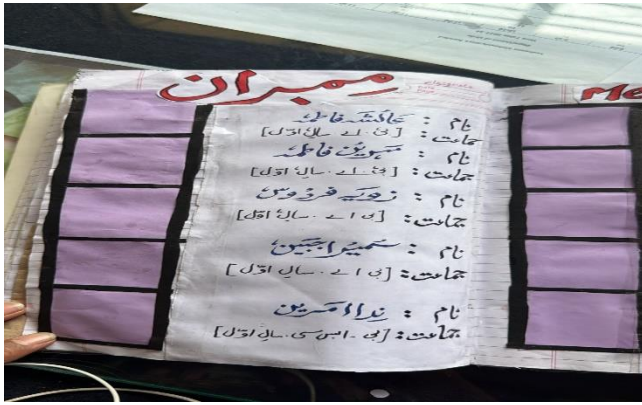 ممبران
نام : عائشہ فاطمہ
جماعت : [بی۔اے سالِ اوّل]
نام : مہوین فاطمہ
جماعت : [بی۔اے۔ سالِ اوّل]
نام : زویہ فردوس
جماعت : [بی اے۔ سالِ اوّل]
نام : سمیرا جبین
جماعت : [بی اے۔ سالِ اوّل]
نام : ندا امرین
جماعت : [بی۔ایس سی۔ سالِ اوّل]
Me